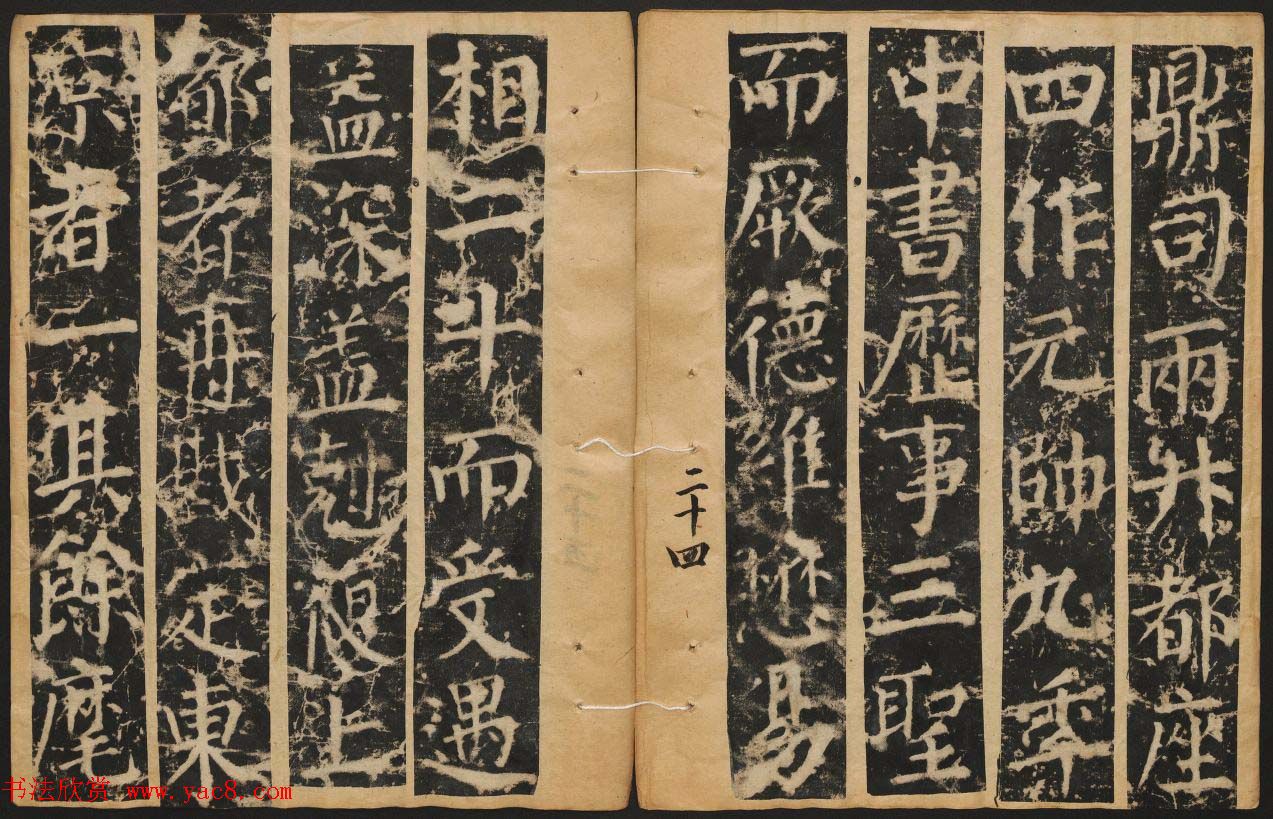 鼎司兩升都座
四作元帥九年
中書歷事三聖
而厥德維懋易
二十四
相二十而受遇
益深蓋剋復上
都者再戡定東
京者一其餘麾
书法欣赏 www.yac8.com